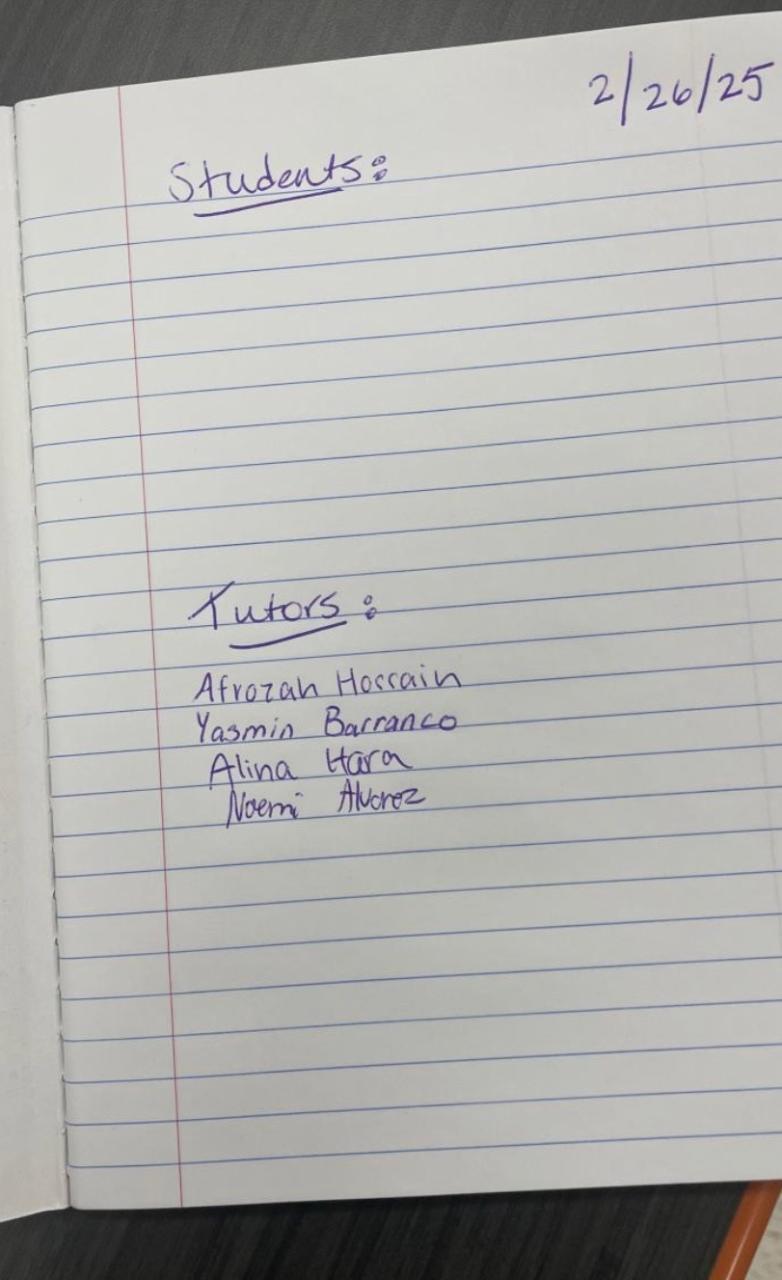 2/26/25
Students:
Tutors:
Afrozah Hossain
Yasmin Barranco
Alina Hara
Noemi Alvarez